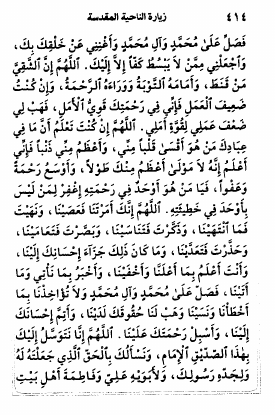 ٤١٤ زيارة الناحية المقدسة
فَصَلِّ عَلىٰ مُحَمَّدٍ وَآلِ مُحَمَّدٍ وَأَغْنِنِي عَنْ خَلْقِكَ بِكَ،
وَاجْعَلْنِي مِمَّنْ لَا يَبْسُطُ كَفّاً إِلَّا إِلَيْكَ. اللَّهُمَّ إِنَّ الشَّقِيَّ
مَنْ قَنَطَ، وَأَمَامَهُ التَّوْبَةُ وَوَرَاءَهُ الرَّحْمَةُ، وَإِنْ كُنْتُ
ضَعِيفَ الْعَمَلِ فَإِنِّي فِي رَحْمَتِكَ قَوِيُّ الْأَمَلِ، فَهَبْ لِي
ضَعْفَ عَمَلِي لِقُوَّةِ أَمَلِي. اللَّهُمَّ إِنْ كُنْتَ تَعْلَمُ أَنَّ مَا فِي
عِبَادِكَ مَنْ هُوَ أَقْسىٰ قَلْباً مِنِّي، وَأَعْظَمُ مِنِّي ذَنْباً فَإِنِّي
أَعْلَمُ إِنَّهُ لَا مَوْلىٰ أَعْظَمُ مِنْكَ طَوْلاً، وَأَوْسَعُ رَحْمَةً
وَعَفْواً، فَيَا مَنْ هُوَ أَوْحَدُ فِي رَحْمَتِهِ إِغْفِرْ لِمَنْ لَيْسَ
بِأَوْحَدَ فِي خَطِيئَتِهِ. اللَّهُمَّ إِنَّكَ أَمَرْتَنَا فَعَصَيْنَا، وَنَهَيْتَ
فَمَا انْتَهَيْنَا، وَذَكَّرْتَ فَتَنَاسَيْنَا، وَبَصَّرْتَ فَتَعَامَيْنَا،
وَحَذَّرْتَ فَتَعَدَّيْنَا، وَمَا كَانَ ذٰلِكَ جَزَاءَ إِحْسَانِكَ إِلَيْنَا،
وَأَنْتَ أَعْلَمُ بِمَا أَعْلَنَّا وَأَخْفَيْنَا، وَأَخْبَرُ بِمَا نَأْتِي وَمَا
أَتَيْنَا، فَصَلِّ عَلىٰ مُحَمَّدٍ وَآلِ مُحَمَّدٍ وَلَا تُؤَاخِذْنَا بِمَا
أَخْطَأْنَا وَنَسِينَا، وَهَبْ لَنَا حُقُوقَكَ لَدَيْنَا، وَأَتِمَّ إِحْسَانَكَ
إِلَيْنَا، وَأَسْبِلْ رَحْمَتَكَ عَلَيْنَا. اللَّهُمَّ إِنَّا نَتَوَسَّلُ إِلَيْكَ
بِهٰذَا الصِّدِّيقِ الْإِمَامِ، وَنَسْأَلُكَ بِالْحَقِّ الَّذِي جَعَلْتَهُ لَهُ
وَلِجَدِّهِ رَسُولِكَ، وَلِأَبَوَيْهِ عَلِيٍّ وَفَاطِمَةَ أَهْلِ بَيْتِ